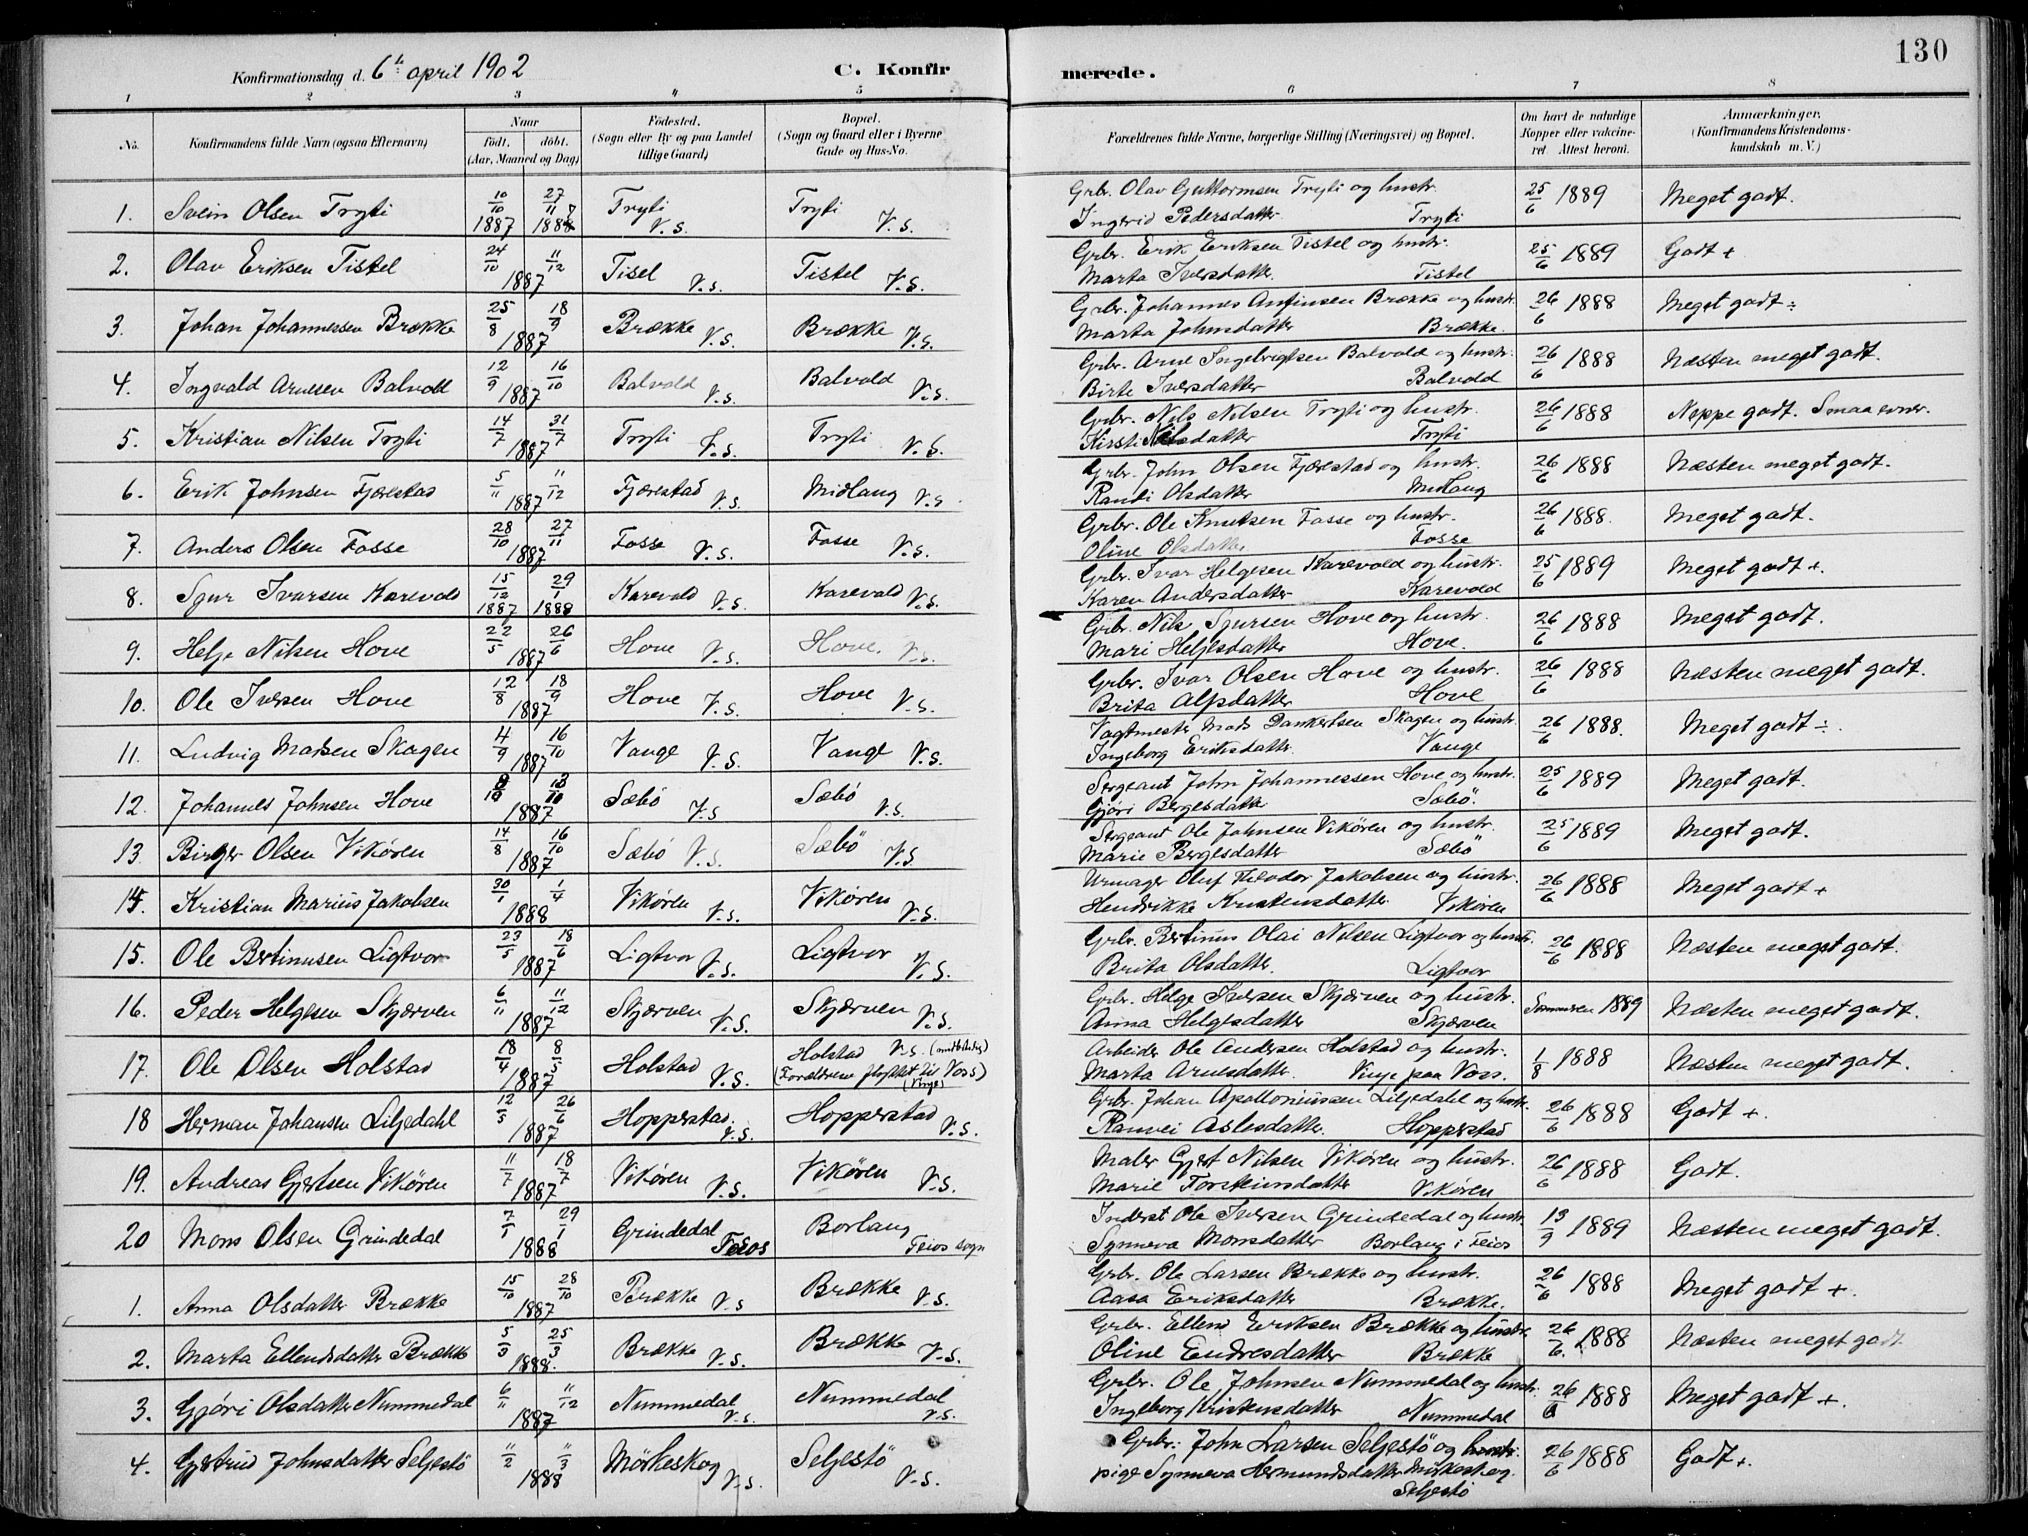 130
Konfirmationsdag d. 6te april 1902
C. Konfirmerede.
1 2 3 " 5 6 7 8
No. Konfirmandens fulde Navn (ogsaa Efternavn) Naar født. døbt. (Aar, Maaned og Dag) Fødested. (Sogn eller By og paa Landet tillige Gaard) Bopæl. (Sogn og Gaard eller i Byerne Gade og Hus-No. Forældrenes fulde Navne, borgerlige Stilling (Næringsvei) og Bopæl. Om havt de naturlige Kopper eller vakcineret. Attest herom. Anmærkninger. (Konfirmandens Kristendomskundskab m. V.)
1. Svein Olsen Tryti 10/10 1887 27/11 1887 Tryti V.S. Tryti V.S. Grbr. Olav Guttormsen Tryti og hustr. Ingerid Pedersdatter Tryti 25/6 1889 Meget godt.
2. Olav Eriksen Tistel 24/10 11/12 1887 Tisel V.S. Tistel V.S. Grbr. Erik Eriksen Tistel og hustr. Marta Iversdatter Tistel 25/6 1889 Godt +
3. Johan Johannessen Brække 25/8 18/9 1887 Brække V.S. Brække V.S. Grbr. Johannes Anfinsen Brække og hustr. Marta Johnsdatter Brække. 26/6 1888 Meget godt ÷
4. Ingvald Arnesen Balvold 12/9 16/10 1887 Balvold V.S. Balvold V.S. Grbr. Arne Ingebrigtsen Balvold og hustr. Birte Iversdatter Balvold 26/6 1888 Næsten meget godt.
5. Kristian Nilsen Tryti 14/7 31/7 1887 Tryti V.S. Tryti V.S. Grbr. Nils Nilsen Tryti og hustr. Kirsti Nilsdatter Tryti 26/6 1888 Neppe godt. Smaa evner.
6. Erik Johnsen Fjærestad 5/11 11/12 1887 Fjærestad V.S. Midlang V.S. Grbr. John Olsen Fjærestad og hustr. Randi Olsdatter Midlang 26/6 1888 Næsten meget godt.
7. Anders Olsen Fosse 28/10 27/11 1887 Fosse V.S. Fosse V.S. Grbr. Ole Knutsen Fosse og hustr. Oline Olsdatter Fosse 26/6 1888. Meget godt.
8. Sjur Ivarsen Karevold 15/12 1887 29/1 1888 Karevold V.S. Karevold V.S. Grbr. Ivar Helgesen Karevold og hustr. Karen Andersdatter Karevold 25/6 1889 Meget godt +.
9. Helje Nilsen Hove 22/5 26/6 1887 Hove V.S. Hove. V.S. Grbr. Nils Sjursen Hove og hustr. Mari Heljesdatter Hove. 26/6 1888 Meget godt.
10. Ole Iversen Hove 12/8 18/9 1887 Hove V.S. Hove V.S. Grbr. Ivar Olsen Hove og hustr. Brita Alfsdatter Hove 26/6 1888 Næsten meget godt.
11. Ludvig Madsen Skagen 4/9 16/10 1887 Vange V.S. Vange V.S. Vagtmester Mads Dankertsen Skagen og hustr. Ingeborg Eriksdatter Vange 26/6 1888. Meget godt ÷.
12. Johannes Johnsen Hove 1887 Sæbø V.S Sæbø V.S. Sergeant John Johannessen Hove og hustr. Gjøri Bergesdatter Sæbø. 25/6 1889 Meget godt.
13. Birger Olsen Vikøren 14/8 16/10 1887 Sæbø V.S. Sæbø V.S Sergeant Ole Johnsen Vikøren og hustr. Marie Bergesdatter Sæbø 25/6 1889 Meget godt.
14. Kristian Marius Jakobsen 30/1 1/4 1888 Vikøren V.S. Vikøren V.S. Urmager Oluf Theodor Jakobsen og hustr. Hendrikke Kristensdatter Vikøren 26/6 1888 Meget godt +
15. Ole Bertinusen Ligtvor 23/5 18/6 1887 Ligtvor V.S. Ligtvor V.S. Grbr. Bertinus Olai Nilsen Ligtvor og hustr. Brita Olsdatter. Ligtvor 26/6 1888 Næsten meget godt.
16. Peder Helgesen Skjærven 6/11 11/12 1887 Skjærven V.S. Skjærven V.S. Grbr. Helge Iversen Skjærven og hustr. Anna Helgesdatter Skjærven Sommeren 1889 Næsten meget godt.
17. Ole Olsen Holstad 18/4 8/5 1887 Holstad V.S. Holstad V.S. (midlertidig) (Forældrene flyttet til Voss) (Vinje) Arbeider Ole Andersen Holstad og hustr. Marta Arnesdatter. Vinje paa Voss. 1/8 1888 Næsten meget godt.
18 Herman Johansen Liljedahl 12/5 26/6 1887 Hopperstad V.S. Hopperstad V.S. Grbr. Johan Apolloniussen Liljedahl og hustr. Ranvei Aslesdatter. Hopperstad 26/6 1888 Godt +.
19. Andreas Gjertsen Vikøren 11/7 18/7 1887 Vikøren V.S. Vikøren V.S. Maler Gjert Nilsen Vikøren og hustr. Marie Torsteinsdatter Vikøren 26/6 1888 Godt.
20 Mons Olsen Grindedal 7/1 29/1 1888 Grindedal Feios Borlaug Feios sogn Inderst Ole Iversen Grindedal og hustr. Synneva Monsdatter Borlaug i Feios 13/9 1889 Næsten meget godt.
1. Anna Olsdatter Brække 15/10 28/10 1887 Brække V.S Brække V.S. Grbr. Ole Larsen Brække og hustr. Aasa Eriksdatter Brække. 26/6 1888 Meget godt +.
2. Marta Ellendsdatter Brække 5/3 25/3 1888. Brække V.S. Brække V.S. Grbr. Ellend Eriksen Brække og hustr. Oline Endresdatter Brække 26/6. 1888 Næsten meget godt
3. Gjøri Olsdatter Nummedal 6/11 11/12 1887 Nummedal V.S. Nummedal V.S. Grbr. Ole Johnsen Nummedal og hustr. Ingeborg Kristensdatter Nummedal 26/6 1888 Meget godt +
4. Gjertrud Johnsdatter Seljestø 11/2 11/3 1888 Mørkeskog V.S. Seljestø V.S. Grbr. John Larsen Seljestø og pige Synneva Hermundsdatter Mørkeskog. Seljestø 26/6 1888 Godt +.